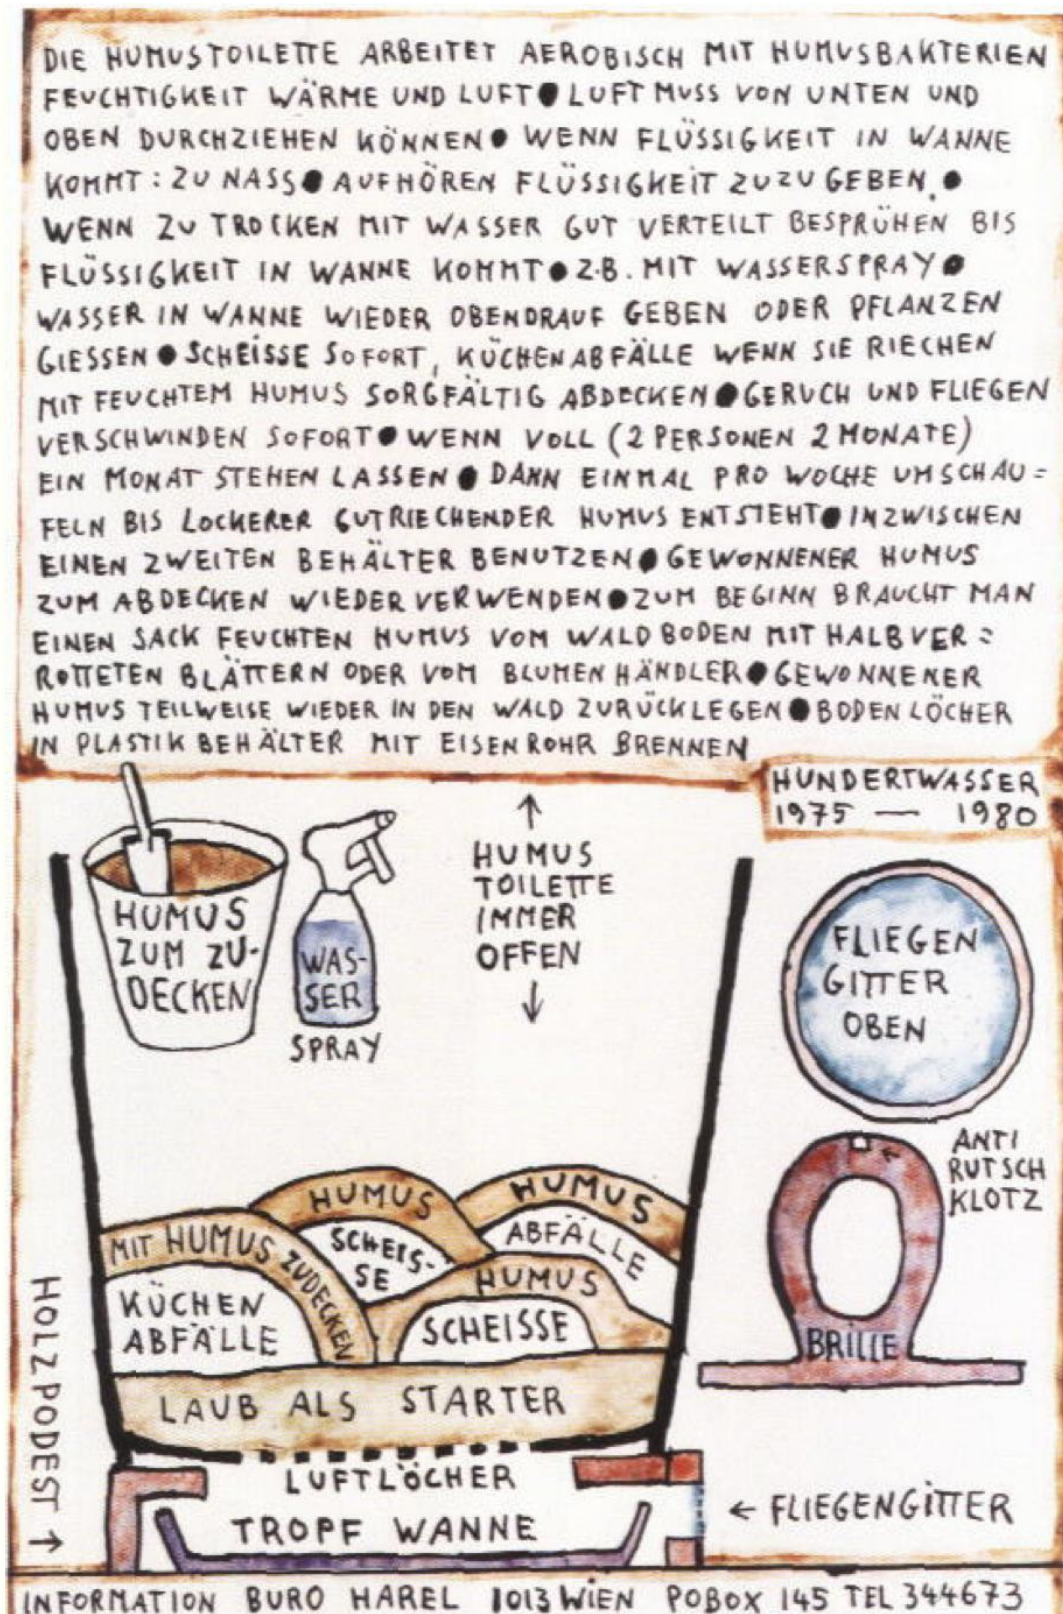 DIE HUMUSTOILETTE ARBEITET AEROBISCH MIT HUMUSBAKTERIEN
FEUCHTIGKEIT WÄRME UND LUFT ● LUFT MUSS VON UNTEN UND
OBEN DURCHZIEHEN KÖNNEN ● WENN FLÜSSIGKEIT IN WANNE
KOMMT: ZU NASS ● AUFHÖREN FLÜSSIGKEIT ZUZUGEBEN. ●
WENN ZU TROCKEN MIT WASSER GUT VERTEILT BESPRÜHEN BIS
FLÜSSIGKEIT IN WANNE KOMMT ● Z.B. MIT WASSERSPRAY ●
WASSER IN WANNE WIEDER OBENDRAUF GEBEN ODER PFLANZEN
GIESSEN ● SCHEISSE SOFORT, KÜCHENABFÄLLE WENN SIE RIECHEN
MIT FEUCHTEM HUMUS SORGFÄLTIG ABDECKEN ● GERUCH UND FLIEGEN
VERSCHWINDEN SOFORT ● WENN VOLL (2 PERSONEN 2 MONATE)
EIN MONAT STEHEN LASSEN ● DANN EINMAL PRO WOCHE UMSCHAU=
FELN BIS LOCKERER GUTRIECHENDER HUMUS ENTSTEHT ● INZWISCHEN
EINEN ZWEITEN BEHÄLTER BENUTZEN ● GEWONNENER HUMUS
ZUM ABDECKEN WIEDER VERWENDEN ● ZUM BEGINN BRAUCHT MAN
EINEN SACK FEUCHTEN HUMUS VOM WALDBODEN MIT HALBVER=
ROTTETEN BLÄTTERN ODER VOM BLUMENHÄNDLER ● GEWONNENER
HUMUS TEILWEISE WIEDER IN DEN WALD ZURÜCKLEGEN ● BODENLÖCHER
IN PLASTIKBEHÄLTER MIT EISENROHR BRENNEN
HUNDERTWASSER
1975 — 1980
HUMUS
ZUM ZU-
DECKEN
WAS-
SER
SPRAY
↑
HUMUS
TOILETTE
IMMER
OFFEN
↓
FLIEGEN
GITTER
OBEN
ANTI
RUTSCH
KLOTZ
BRILLE
HUMUS
HUMUS
MIT HUMUS ZUDECKEN
SCHEIS-
SE
ABFÄLLE
HUMUS
KÜCHEN
ABFÄLLE
SCHEISSE
LAUB ALS STARTER
LUFTLÖCHER
TROPF WANNE
HOLZPODEST →
← FLIEGENGITTER
INFORMATION BURO HAREL 1013 WIEN POBOX 145 TEL 344673